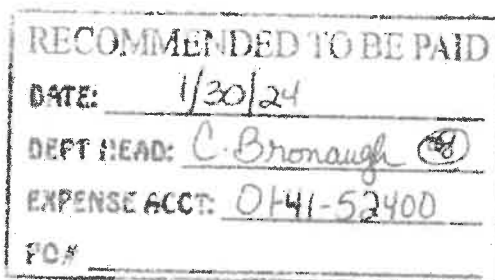 RECOMMENDED TO BE PAID
DATE: 1/30/24
DEPT HEAD: C. Bronaugh
EXPENSE ACCT: 01-41-52400
PO#